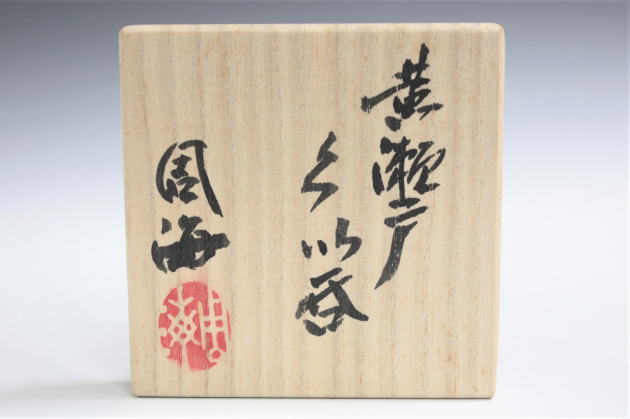 黄瀬戸
くい呑
周海